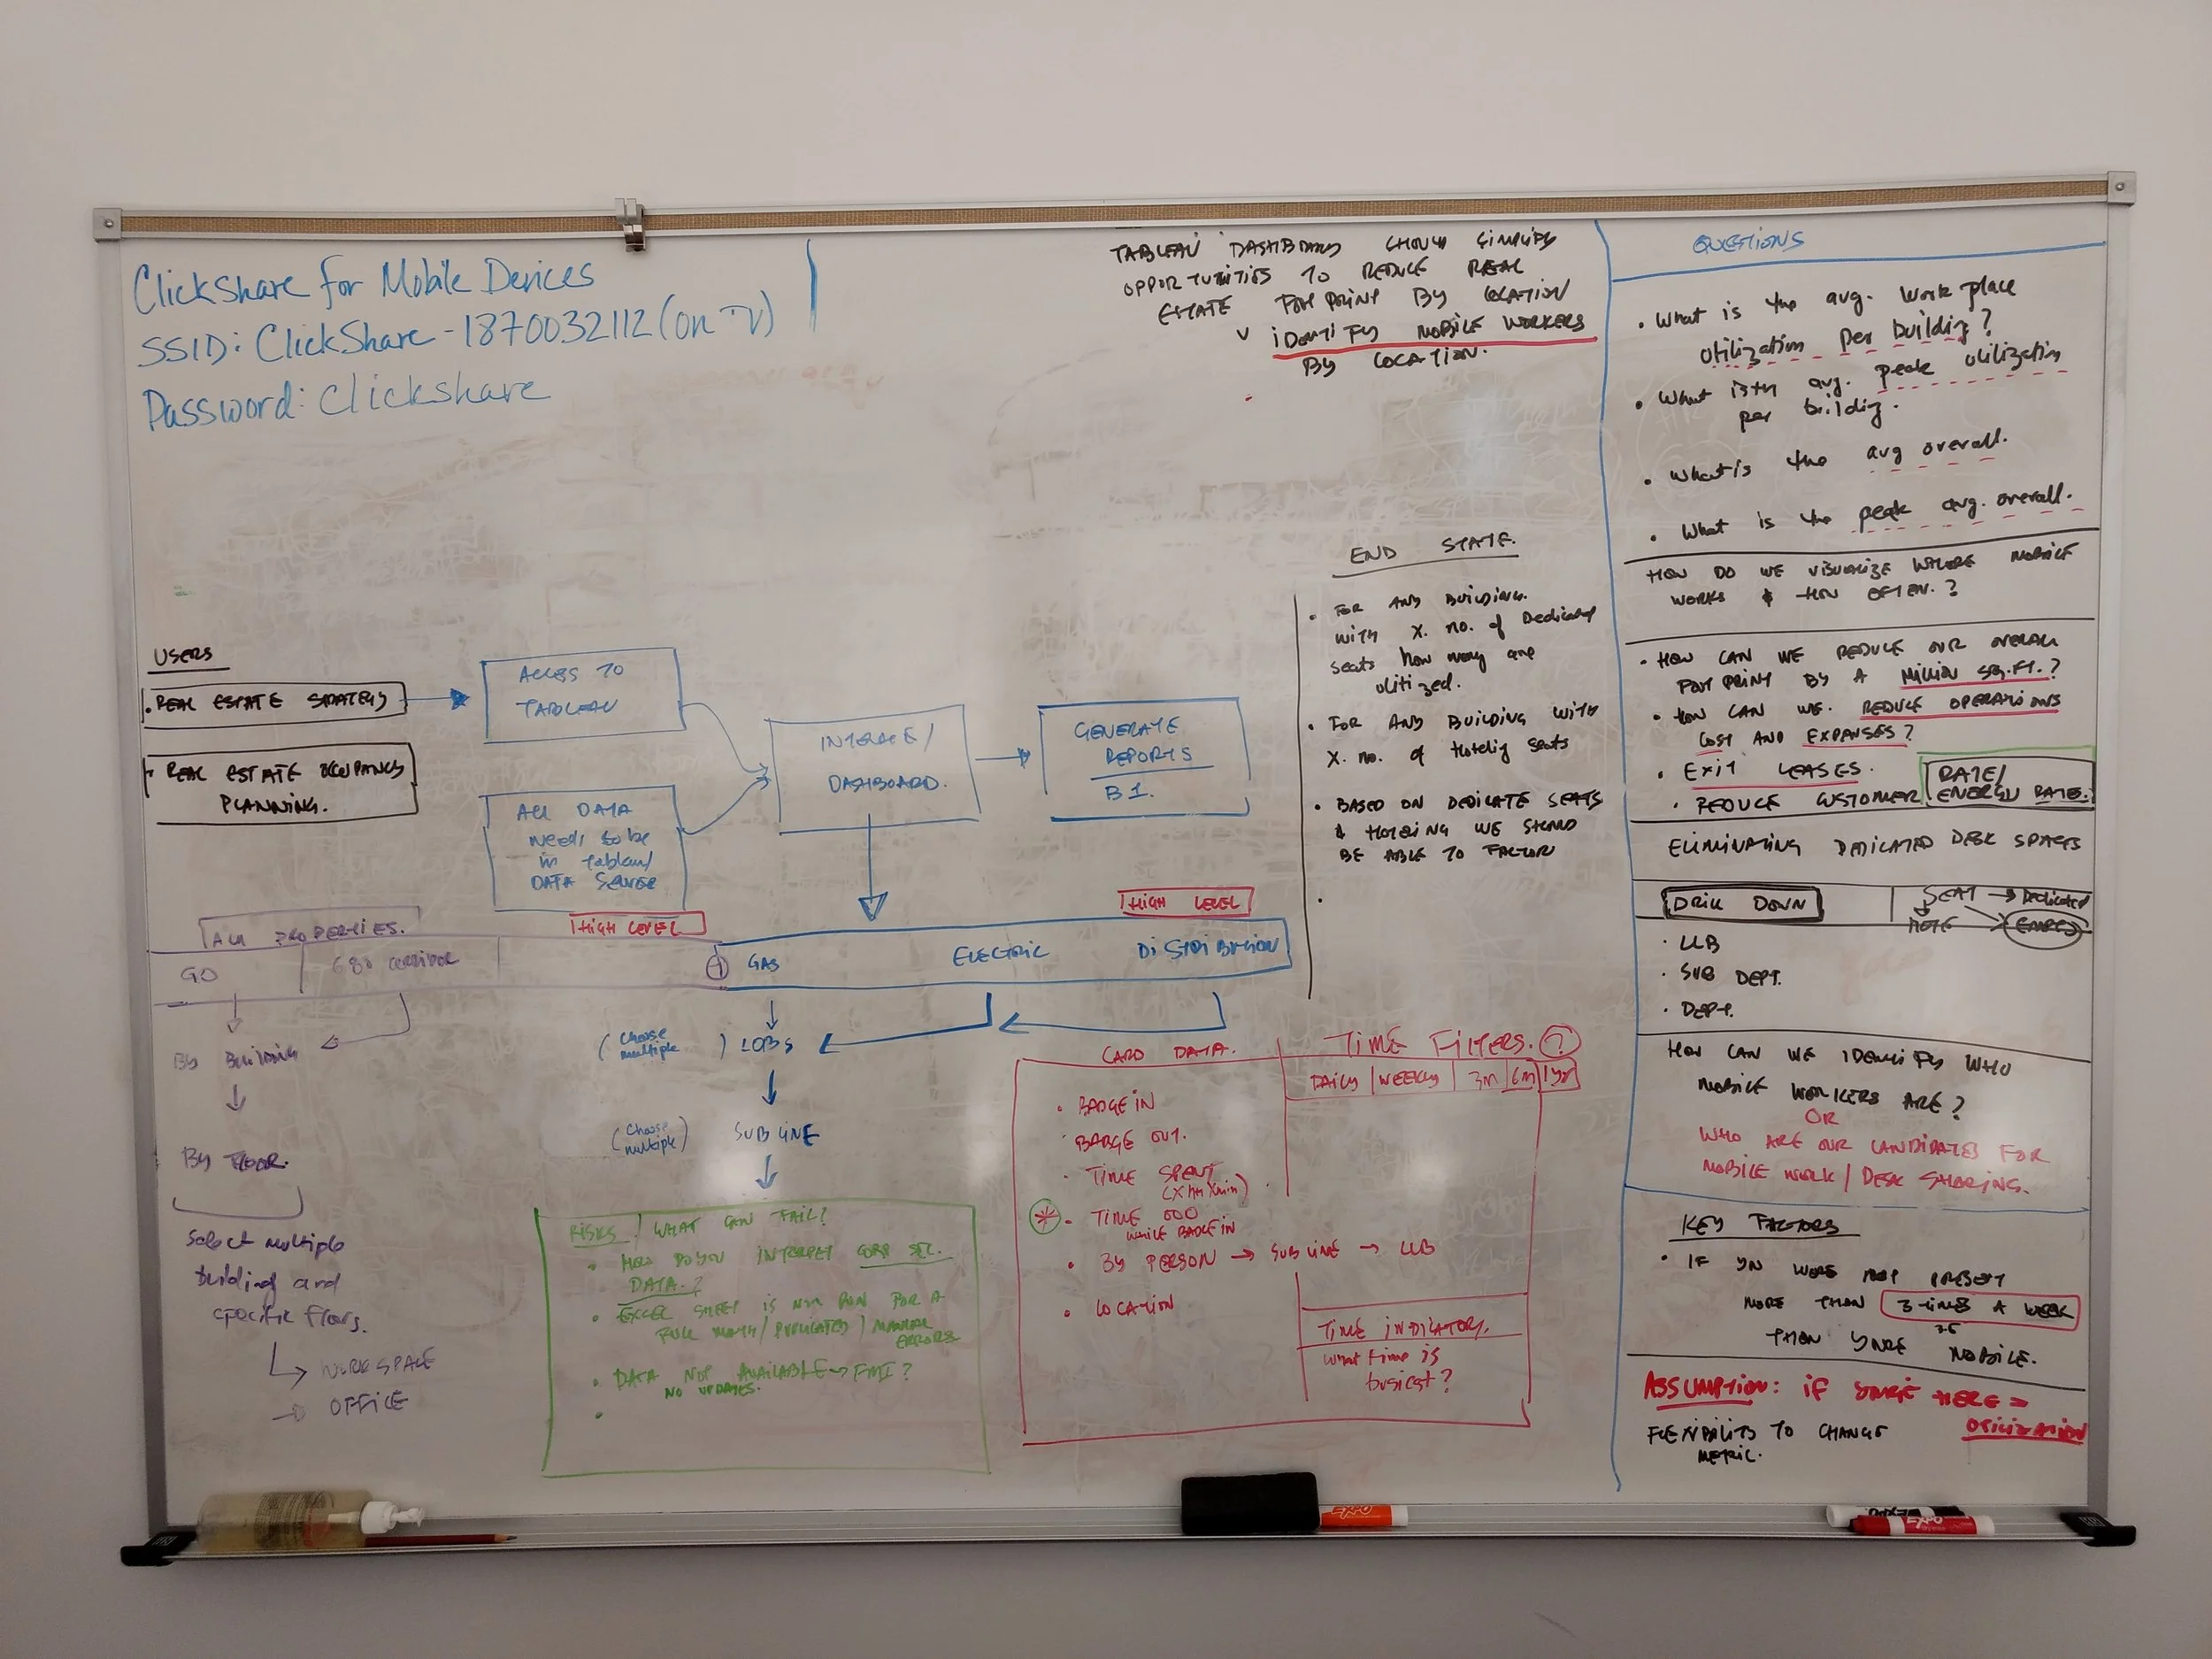 ClickShare for Mobile Devices
SSID: ClickShare-1870032112 (on TV)
Password: Clickshare
TABLEAU DASHBOARD SHOULD SIMPLIFY
OPPORTUNITIES TO REDUCE REAL
ESTATE FOOTPRINT BY LOCATION
IDENTIFY MOBILE WORKERS
BY LOCATION.
USERS
REAL ESTATE STRATEGY
REAL ESTATE OCCUPANCY
PLANNING.
ACCESS TO
TABLEAU
ALL DATA
needs to be
in Tableau/
DATA SERVER
INTERFACE/
DASHBOARD.
GENERATE
REPORTS
B1.
ALL PROPERTIES.
HIGH LEVEL
HIGH LEVEL
GO
680 CORRIDOR
GAS
ELECTRIC
DISTRIBUTION
By Building
By FLOOR.
Select multiple
building and
specific floors.
WORKSPACE
OFFICE
(Choose multiple) LOBS
(Choose multiple) SUB LINE
RISKS / WHAT CAN FAIL?
HOW DO YOU INTERPRET CORP SEC.
DATA.?
EXCEL SHEET IS NOT RUN FOR A
FULL MONTH / DUPLICATED / MANUAL
ERRORS
DATA NOT AVAILABLE → FMI?
NO UPDATES.
CARD DATA.
BADGE IN
BADGE OUT.
TIME SPENT
(X hrs Xmin)
TIME OOO
WHILE BADGE IN
BY PERSON → SUB LINE → LLB
LOCATION
TIME FILTERS. ?
DAILY | WEEKLY | 3m | 6m | 1yr
TIME INDICATORS.
What time is
busiest?
END STATE.
FOR ANY BUILDING.
with X. no. of Dedicated
seats how many are
utitized.
FOR ANY BUILDING WITH
X. no. of Hoteling seats
BASED ON DEDICATE SEATS
& HOTELING WE SHOULD
BE ABLE TO FACTOR
QUESTIONS
What is the avg. Work place
utilization per building?
What is the avg. peak utilization
per building.
What is the avg overall.
What is the peak avg. overall.
HOW DO WE VISUALIZE WHERE MOBILE
WORKS & HOW OFTEN.?
HOW CAN WE REDUCE OUR OVERALL
FOOT PRINT BY A MILLION SQ.FT.?
HOW CAN WE. REDUCE OPERATIONS
COST AND EXPENSES?
EXIT LEASES.
REDUCE CUSTOMER RATE/
ENERGY RATES.
ELIMINATING DEDICATED DESK SPACES
DRILL DOWN
SEAT → Dedicated
LLB
SUB DEPT.
DEPT.
HOW CAN WE IDENTIFY WHO
MOBILE WORKERS ARE?
OR
WHO ARE OUR CANDIDATES FOR
MOBILE WORK / DESK SHARING.
KEY FACTORS
IF YOU WERE NOT PRESENT
MORE THAN 3 times A WEEK
THEN YOU'RE MOBILE.
ASSUMPTION: IF YOU'RE HERE =
UTILIZATION
FLEXIBILITY TO CHANGE
METRIC.
EXPO
EXPO